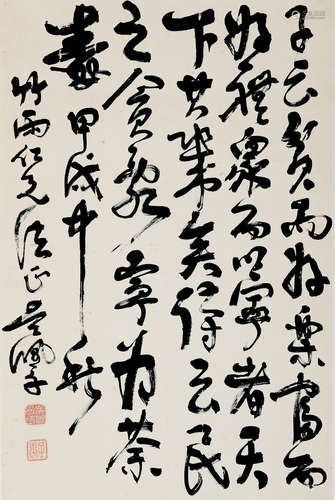 子云貧而好樂富而
好禮眾而以寧者天
下其幾矣詩云民
之貪亂寧為荼
毒甲戌中秋
竹雨仁兄法正吳佩孚